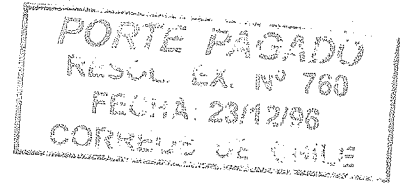 PORTE PAGADO
RESOL. EX. Nº 760
FECHA: 23/12/96
CORREOS DE CHILE